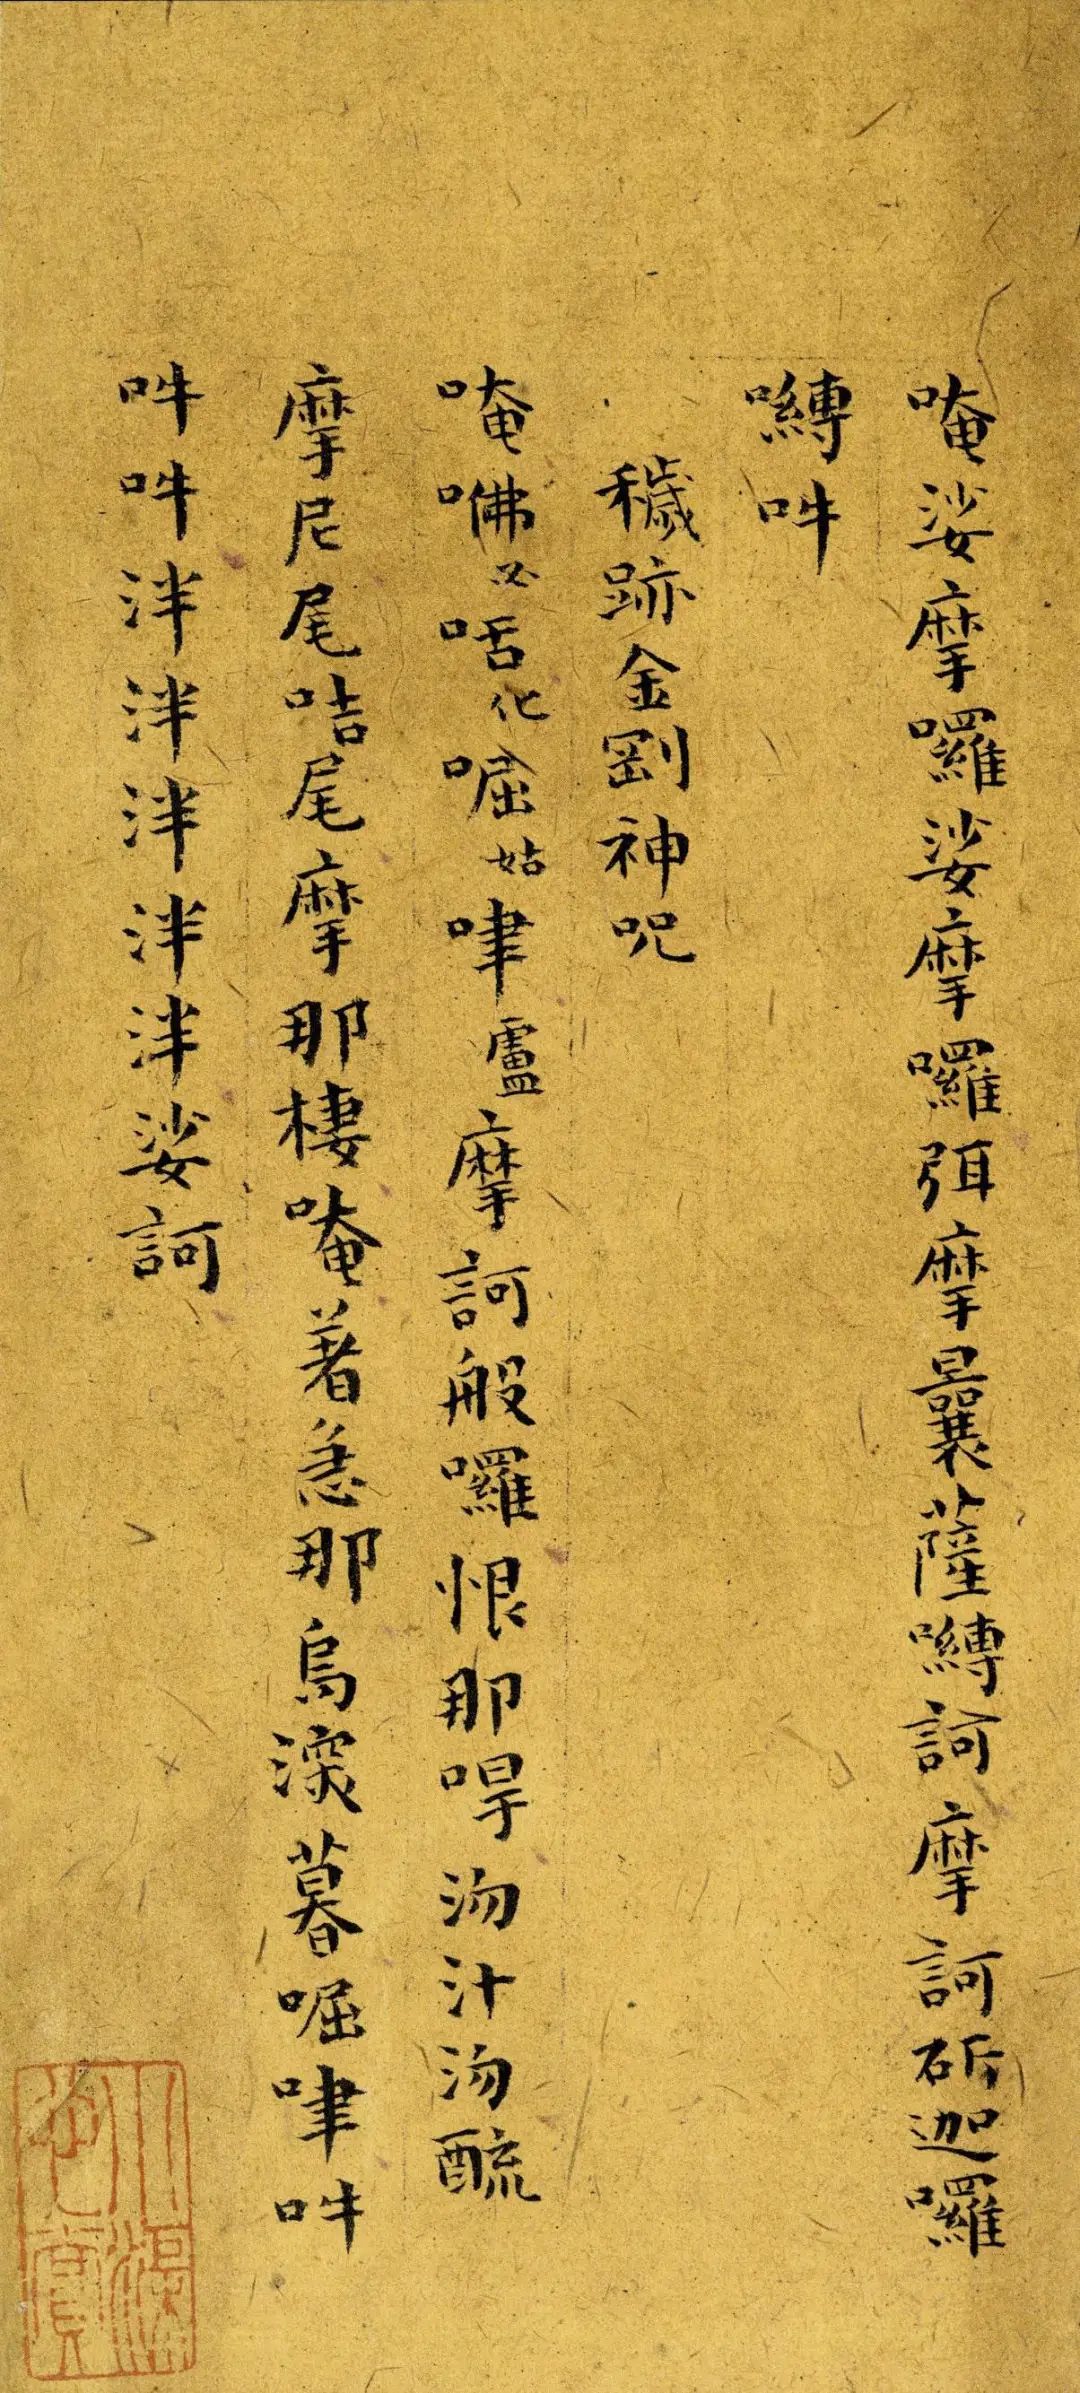 唵娑摩囉娑摩囉弭摩曩薩嚩訶摩訶斫迦囉
嚩吽
穢跡金剛神呪
唵咈必咶化啒姑㖀盧摩訶般囉恨那㖕沕汁沕醯
摩尼尾咭尾摩那棲唵著急那烏深暮啒㖀吽
吽吽泮泮泮泮泮娑訶